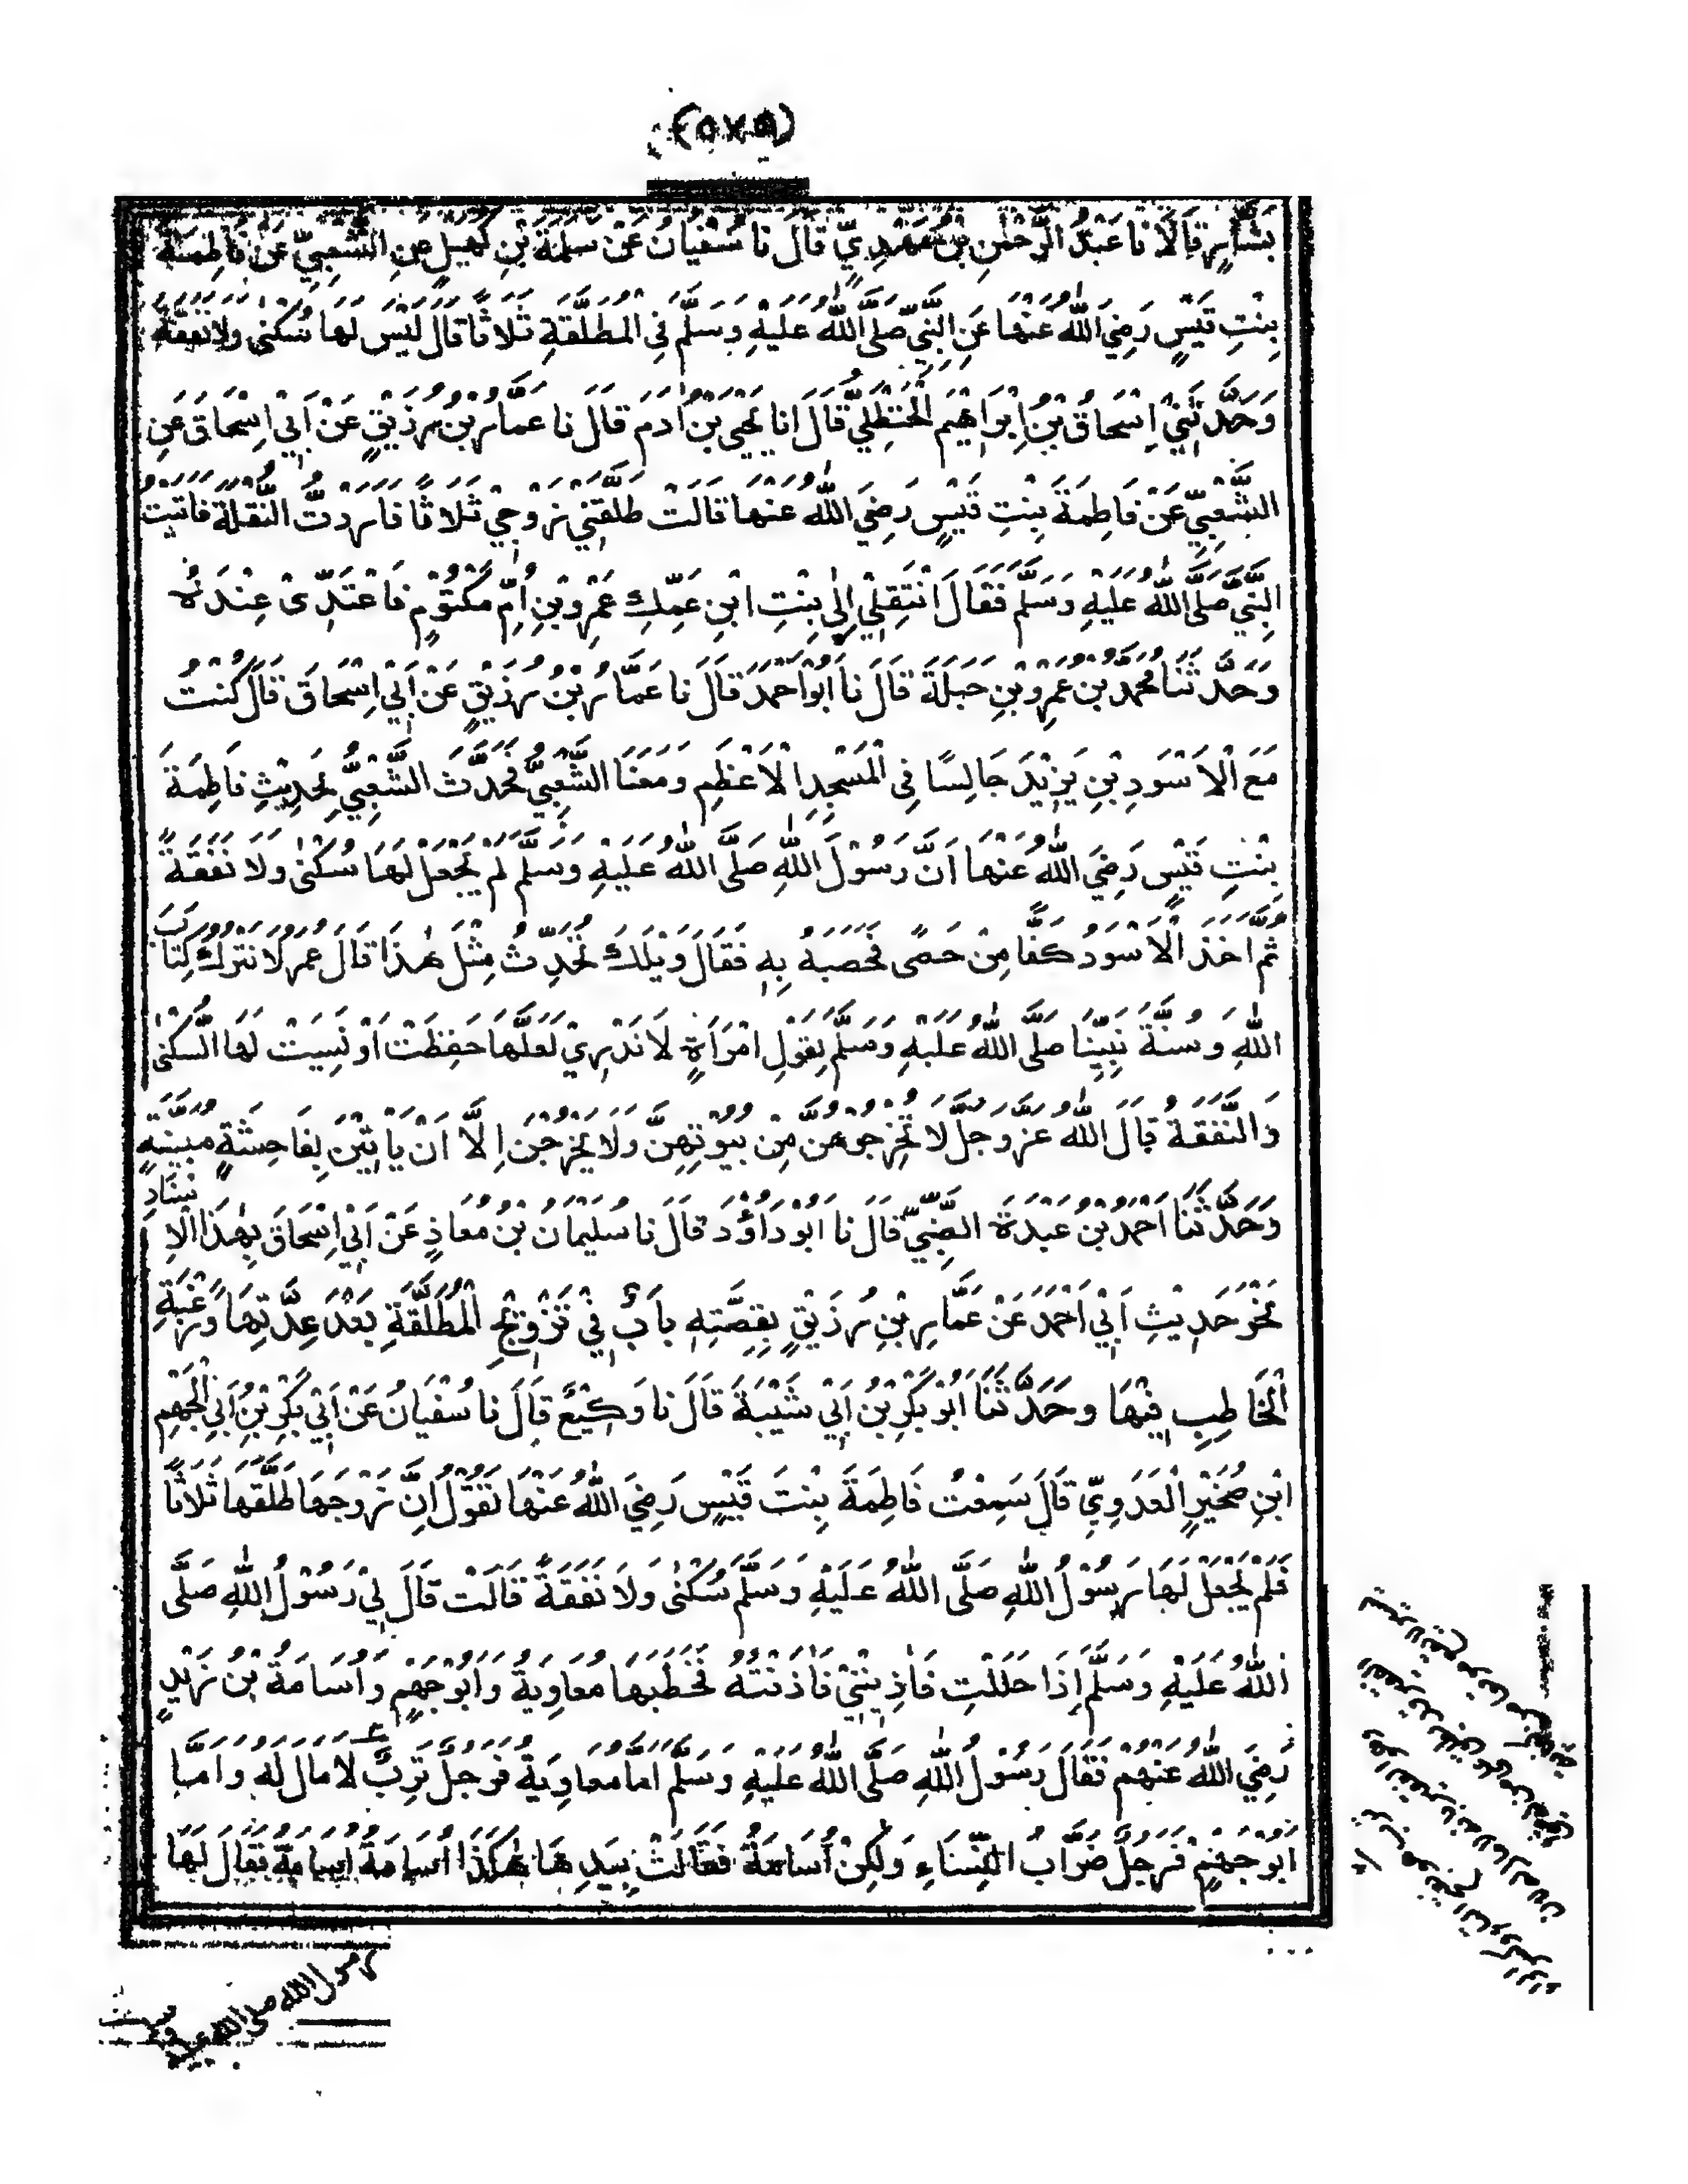 (٥٧٥)
بَشَّارٍ قَالَا نَا عَبْدُ الرَّحْمٰنِ بْنُ مَهْدِيٍّ قَالَ نَا سُفْيَانُ عَنْ سَلَمَةَ بْنِ كُهَيْلٍ عَنِ الشَّعْبِيِّ عَنْ فَاطِمَةَ
بِنْتِ قَيْسٍ رَضِيَ اللّٰهُ عَنْهَا عَنِ النَّبِيِّ صَلَّى اللّٰهُ عَلَيْهِ وَسَلَّمَ فِي الْمُطَلَّقَةِ ثَلَاثًا قَالَ لَيْسَ لَهَا سُكْنٰى وَلَا نَفَقَةٌ
وَحَدَّثَنِيْ اِسْحَاقُ بْنُ اِبْرَاهِيْمَ الْحَنْظَلِيُّ قَالَ اَنَا يَحْيَى بْنُ اٰدَمَ قَالَ نَا عَمَّارُ بْنُ رُزَيْقٍ عَنْ اَبِيْ اِسْحَاقَ عَنِ
الشَّعْبِيِّ عَنْ فَاطِمَةَ بِنْتِ قَيْسٍ رَضِيَ اللّٰهُ عَنْهَا قَالَتْ طَلَّقَنِيْ زَوْجِيْ ثَلَاثًا فَاَرَدْتُّ النُّقْلَةَ فَاَتَيْتُ
النَّبِيَّ صَلَّى اللّٰهُ عَلَيْهِ وَسَلَّمَ فَقَالَ انْتَقِلِيْ اِلٰى بِنْتِ ابْنِ عَمِّكِ عَمْرِو بْنِ اُمِّ مَكْتُوْمٍ فَاعْتَدِّىْ عِنْدَهُ
وَحَدَّثَنَا مُحَمَّدُ بْنُ عَمْرِو بْنِ جَبَلَةَ قَالَ نَا اَبُوْ اَحْمَدَ قَالَ نَا عَمَّارُ بْنُ رُزَيْقٍ عَنْ اَبِيْ اِسْحَاقَ قَالَ كُنْتُ
مَعَ الْاَسْوَدِ بْنِ يَزِيْدَ جَالِسًا فِى الْمَسْجِدِ الْاَعْظَمِ وَمَعَنَا الشَّعْبِيُّ فَحَدَّثَ الشَّعْبِيُّ بِحَدِيْثِ فَاطِمَةَ
بِنْتِ قَيْسٍ رَضِيَ اللّٰهُ عَنْهَا اَنَّ رَسُوْلَ اللّٰهِ صَلَّى اللّٰهُ عَلَيْهِ وَسَلَّمَ لَمْ يَجْعَلْ لَهَا سُكْنٰى وَلَا نَفَقَةً
ثُمَّ اَخَذَ الْاَسْوَدُ كَفًّا مِنْ حَصًى فَحَصَبَهُ بِهِ فَقَالَ وَيْلَكَ تُحَدِّثُ مِثْلَ هٰذَا قَالَ عُمَرُ لَا نَتْرُكُ كِتَابَ
اللّٰهِ وَسُنَّةَ نَبِيِّنَا صَلَّى اللّٰهُ عَلَيْهِ وَسَلَّمَ بِقَوْلِ امْرَاَةٍ لَا نَدْرِيْ لَعَلَّهَا حَفِظَتْ اَوْ نَسِيَتْ لَهَا السُّكْنٰى
وَالنَّفَقَةُ قَالَ اللّٰهُ عَزَّ وَجَلَّ لَا تُخْرِجُوْهُنَّ مِنْ بُيُوْتِهِنَّ وَلَا يَخْرُجْنَ اِلَّا اَنْ يَاْتِيْنَ بِفَاحِشَةٍ مُبَيِّنَةٍ
وَحَدَّثَنَا اَحْمَدُ بْنُ عَبْدَةَ الضَّبِّيُّ قَالَ نَا اَبُوْ دَاوٗدَ قَالَ نَا سُلَيْمَانُ بْنُ مُعَاذٍ عَنْ اَبِيْ اِسْحَاقَ بِهٰذَا الْاِسْنَادِ
نَحْوَ حَدِيْثِ اَبِيْ اَحْمَدَ عَنْ عَمَّارِ بْنِ رُزَيْقٍ بِقِصَّتِهِ بَابٌ فِيْ تَزْوِيْجِ الْمُطَلَّقَةِ بَعْدَ عِدَّتِهَا وَرَغْبَةِ
الْخَاطِبِ فِيْهَا وَحَدَّثَنَا اَبُوْ بَكْرِ بْنُ اَبِيْ شَيْبَةَ قَالَ نَا وَكِيْعٌ قَالَ نَا سُفْيَانُ عَنْ اَبِيْ بَكْرِ بْنِ اَبِي الْجَهْمِ
ابْنِ صُخَيْرٍ الْعَدَوِيِّ قَالَ سَمِعْتُ فَاطِمَةَ بِنْتَ قَيْسٍ رَضِيَ اللّٰهُ عَنْهَا تَقُوْلُ اِنَّ زَوْجَهَا طَلَّقَهَا ثَلَاثًا
فَلَمْ يَجْعَلْ لَهَا رَسُوْلُ اللّٰهِ صَلَّى اللّٰهُ عَلَيْهِ وَسَلَّمَ سُكْنٰى وَلَا نَفَقَةً قَالَتْ قَالَ لِيْ رَسُوْلُ اللّٰهِ صَلَّى
اللّٰهُ عَلَيْهِ وَسَلَّمَ اِذَا حَلَلْتِ فَاٰذِنِيْنِيْ فَاٰذَنَتْهُ فَخَطَبَهَا مُعَاوِيَةُ وَاَبُوْ جَهْمٍ وَاُسَامَةُ بْنُ زَيْدٍ
رَضِيَ اللّٰهُ عَنْهُمْ فَقَالَ رَسُوْلُ اللّٰهِ صَلَّى اللّٰهُ عَلَيْهِ وَسَلَّمَ اَمَّا مُعَاوِيَةُ فَرَجُلٌ تَرِبٌ لَا مَالَ لَهُ وَاَمَّا
اَبُوْ جَهْمٍ فَرَجُلٌ ضَرَّابٌ النِّسَاءِ وَلٰكِنْ اُسَامَةُ فَقَالَتْ بِيَدِهَا هٰكَذَا اُسَامَةُ اُسَامَةُ فَقَالَ لَهَا
رسول الله صلى الله عليه